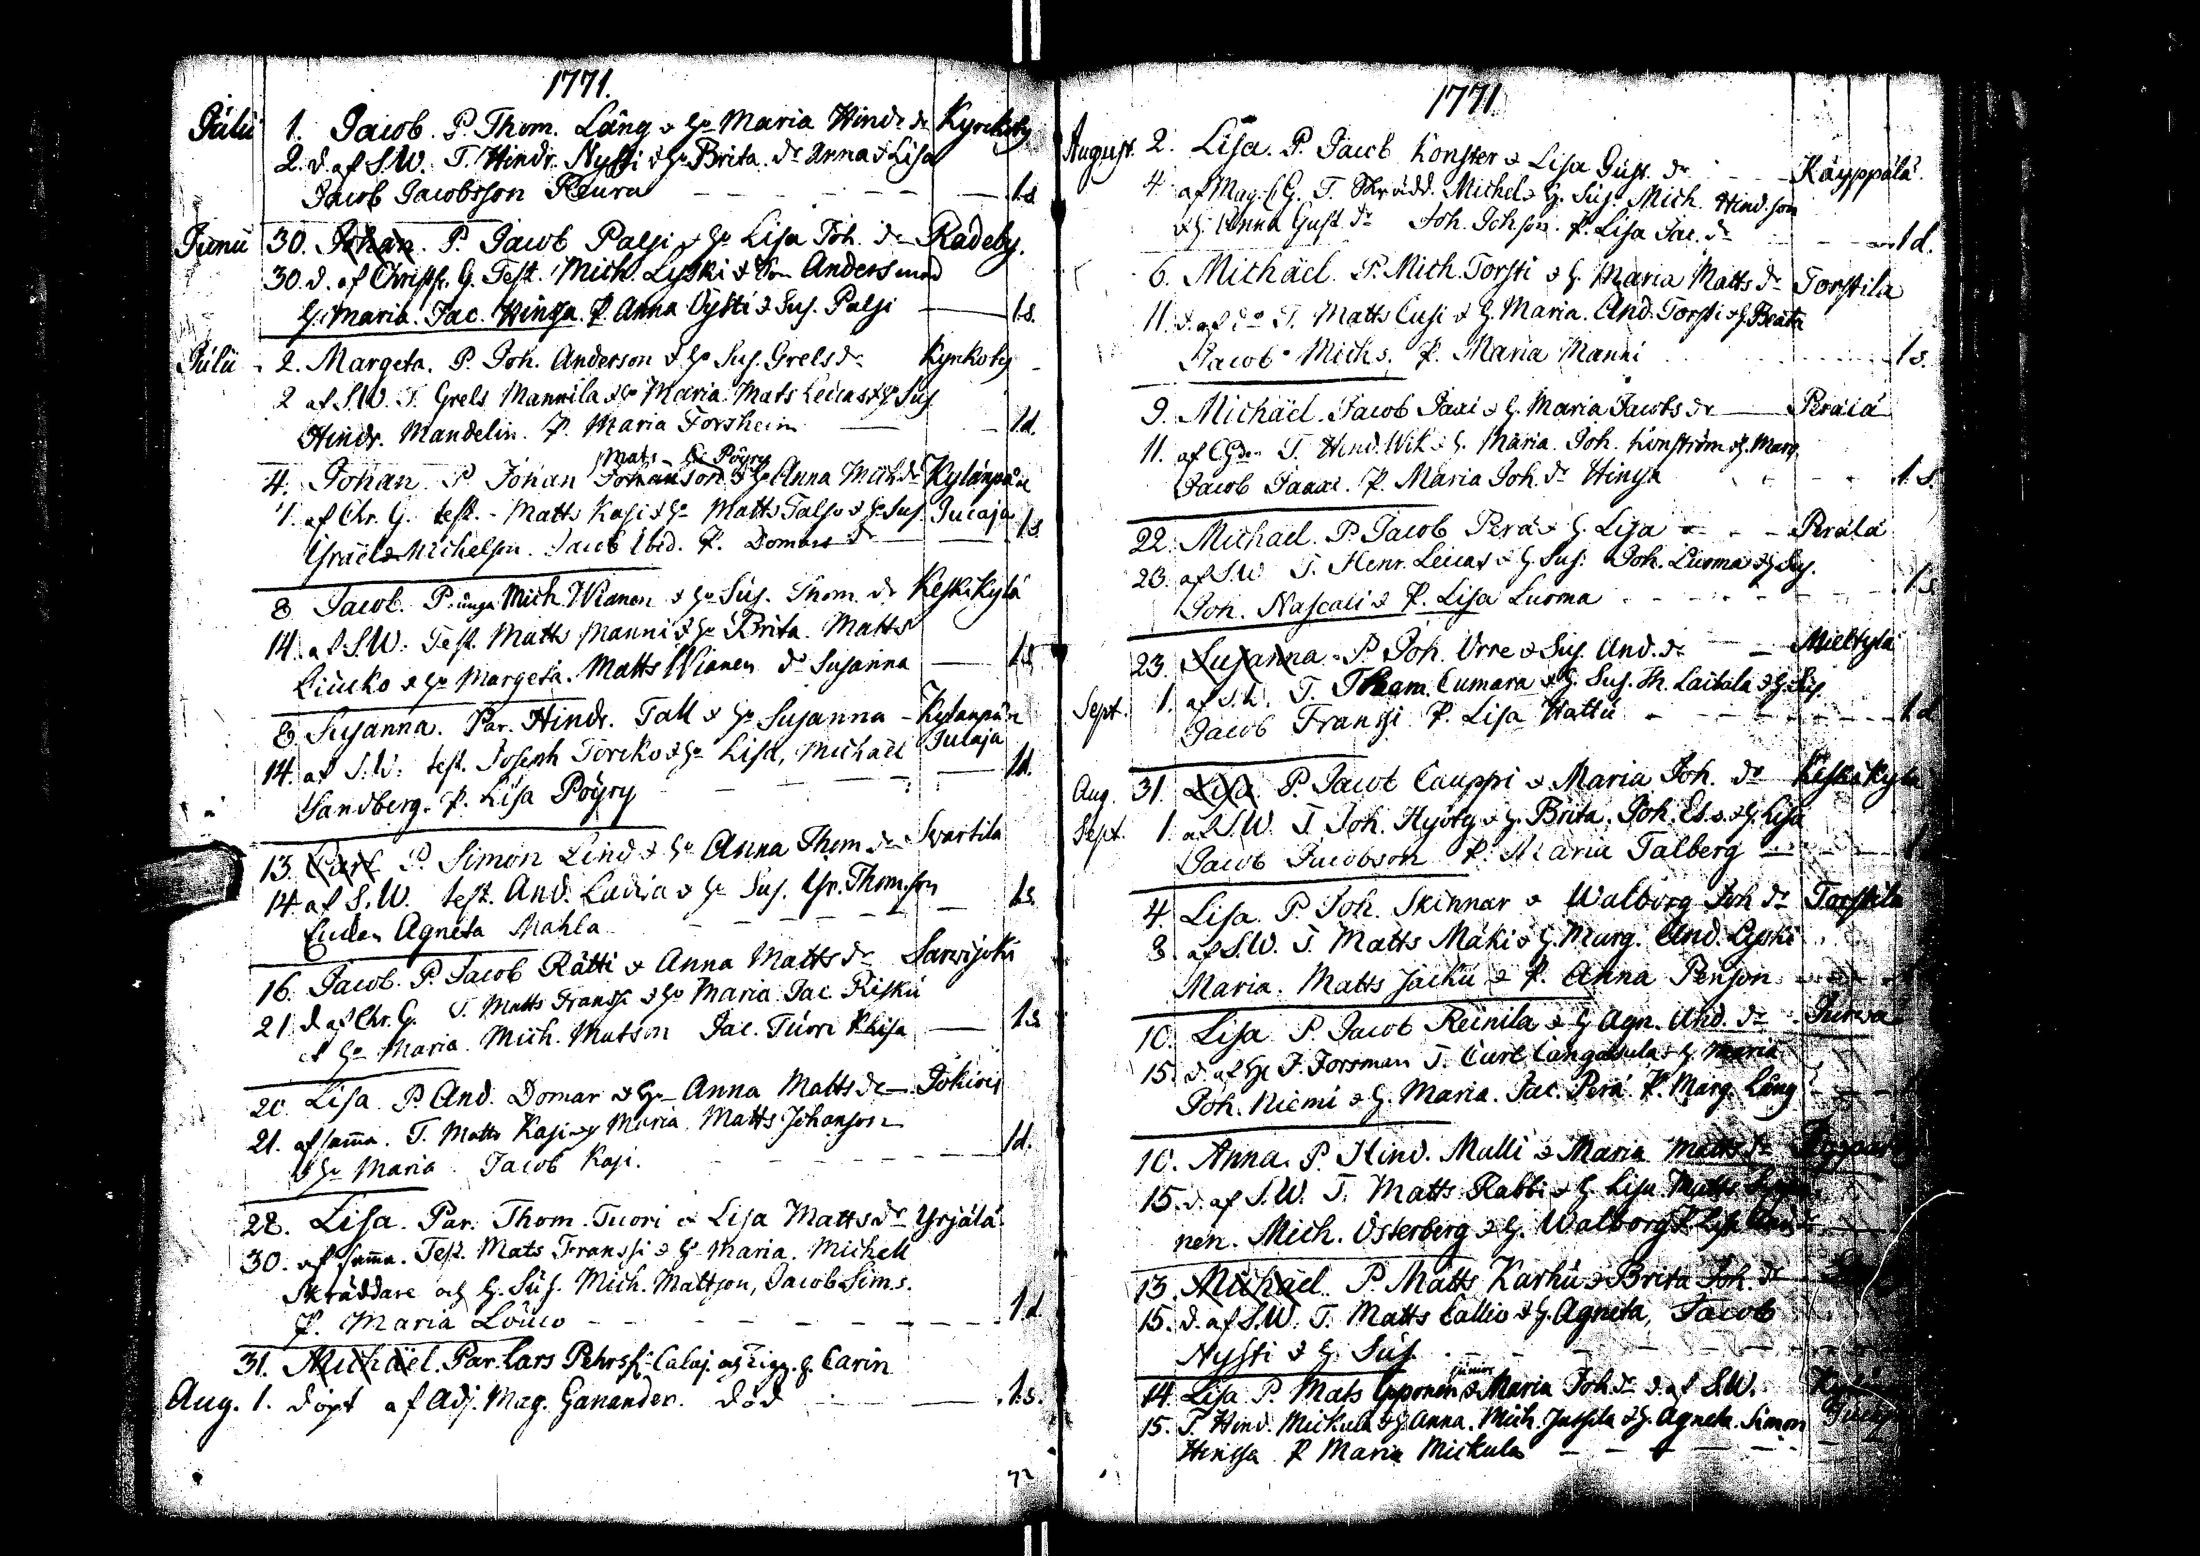 1771.
Julii 1. Jacob. P. Thom. Lång & H:o Maria Hindr. dr Kyrckoby
2. d. af S.W. T. Hindr. Nysti & H:o Brita. dr Anna & Lisa
Jacob Jacobsson Reura 1.s.
Junii 30. Johan. P. Jacob Palsi & H:o Lisa Joh. dr Radeby.
30. d. af Christ. G. Test. Mich. Lyski & Anders
H. Maria. Jac. Hinsa. P. Anna Oysti & Sus. Palsi 1.s.
Julii 2. Margeta. P. Joh. Anderson & H:o Sus. Grels dr Kyrkoby
2 af S.W. T. Grels Mannila & H:o Maria. Mats Leicas & H:o Sus
Hindr. Mandelin. P. Maria Forsheim 1d.
Mats Pöyry
4. Johan. P. Johan Johanson & H:o Anna Mich dr Kylänpän
7. af Chr. G. test. Matts Kasi & H:o Matts Talso & H:o Sus. Jucaja 1s
Israel Michelson. Jacob ibid. P. Domars dr
8 Jacob. P. unga Mich. Wianen & H:o Sus. Thom. dr Keskikylä
14. af S.W. Test. Matts Manni & H:o Brita. Matts
Liucko & H:o Margeta. Matts Wianen dr Susanna 1.s
8. Susanna. Par. Hindr. Tall & H:o Susanna Kylänpän
14. af S.W. test. Joseph Törcko & H:o Lisa, Michael Jucaja 1d.
Sandberg. P. Lisa Pöyry
13. Carl P. Simon Lind & H:o Anna Thom dr Svartila
14. af S.W. test. And. Ludia & H:o Sus. Yr. Thomson 1.s
Agneta Mahla
16. Jacob. P. Jacob Rätti & Anna Matts dr Sarvijoki
21 d. af Chr. G. T. Matts Franssi & H:o Maria Jac. Risku
& H:o Maria. Mich. Matson Jac. Tuori P. Lisa 1.s
20. Lisa P. And. Domar & H:o Anna Matts dr Jokivis
21. af samma. T. Matts Kasi & H. Maria. Matts Johanson
& H:o Maria Jacob Kasi. 1d.
28. Lisa. Par. Thom. Tuori & Lisa Matts dr Yrjälä
30. af samma. Test. Mats Franssi & H. Maria. Michell
Skräddare och H. Sus. Mich. Mattson, Jacob Sims.
P. Maria Löuco 1.d
31. Michäel. Par. Lars Pehrss. Calaj. och H. Carin
Aug. 1. döpt af Adj. Mag. Ganander. död 1.s.
1771
August. 2. Lisa. P. Jacob Konster & Lisa Gust. dr Käyppälä.
4 af Mag. C.G. T. Skrädd. Michel & H. Sus. Mich. Hind.son
& H. Anna Gust. dr Joh. Johson. P. Lisa Jac. dr 1d.
6. Michäel. P. Mich. Torsti & H. Maria Matts dr Torstila
11. d. af do T. Matts Cusi & H. Maria. And. Torsti & H. Beata
Jacob Michs. P. Maria Manni 1s.
9. Michäel. Jacob Jaxi & H. Maria Jacobs dr Perälä
11. af T. Hind. Wik & H. Maria. Joh. Linström & H. Marg.
Jacob Jaaxi. P. Maria Joh. dr Hinsa 1.s.
22. Michael. P. Jacob Perä & H. Lisa Perälä
23. af S.W. T. Henr. Leicas & H. Sus. Joh. Luoma & H. Sus.
Joh. Nascali & P. Lisa Luoma 1.s
23. Susanna. P. Joh. Orre & Sus. And. dr Mielkylä
Sept. 1. af S.W. T. Tham. Cumara & H. Sus. Th. Laitala & H. Sus.
Jacob Franssi P. Lisa Hattu 1.d
Aug. 31. Lisa P. Jacob Cauppi & Maria Joh. dr Keskikylä
Sept. 1. af S.W. T. Joh. Hyöty & H. Brita. Joh. Es.s. & H. Lisa
Jacob Jacobson P. Maria Talberg
4. Lisa. P. Joh. Skinnar & Walborg Joh dr Torstila
8. af S.W. T. Matts Mäki & H. Marg. And. Lyski
Maria. Matts Jackü & P. Anna Penson
10. Lisa P. Jacob Reinila & H. Agn. And. dr Jurwa
15. d. af J. Forsman T. Carl Cangasula & H. Maria
Joh. Niemi & H. Maria. Jac. Perä P. Marg. Lång
10. Anna. P. Hind. Mulli & Maria Matts dr
15. d. af S.W. T. Matts Rabbi & H. Lisa Matts
nen. Mich. Österberg & H. Walborg P. Lisa
13. Michael. P. Matts Karhu & Brita Joh. dr
15. d. af S.W. T. Matts Callio & H. Agneta, Jacob
Nysti & H. Sus.
junior
14. Lisa P. Mats Ipponen & Maria Joh dr d. af S.W.
15. T. Hind. Mickula & H. Anna. Mich. Jussila & H. Agneta. Simon
Hinssa P. Maria Mickula